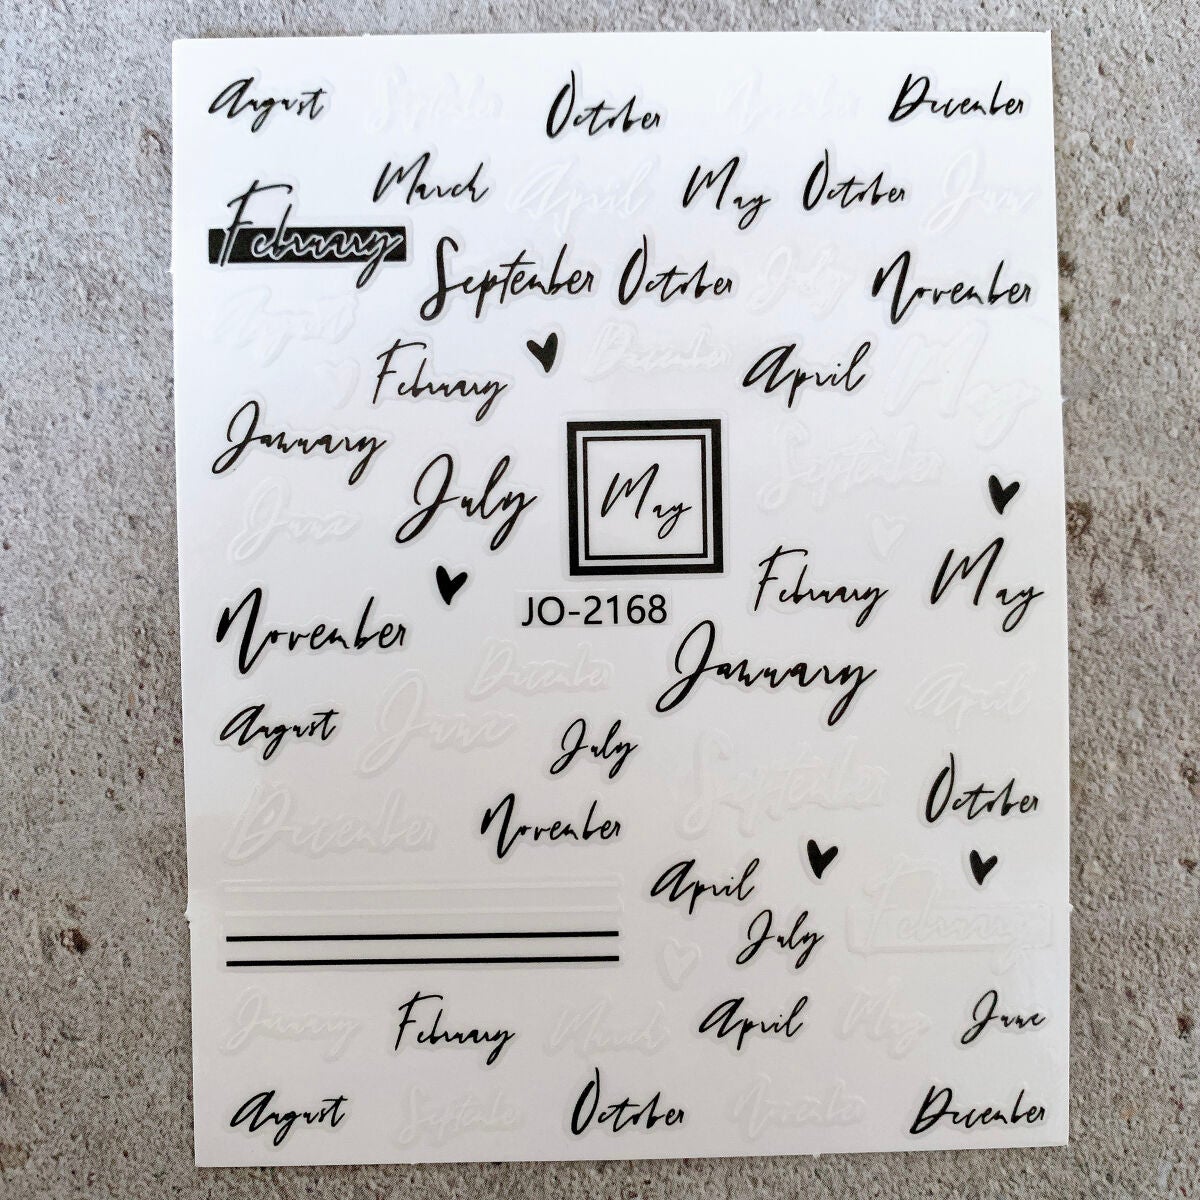 August September October November December
March April May October June
February
September October July November
August
February December April May
January
July May September
June
February May
November
JO-2168
January
December April
August June July
September October
December November
April
July February
January February March April May June
August September October November December